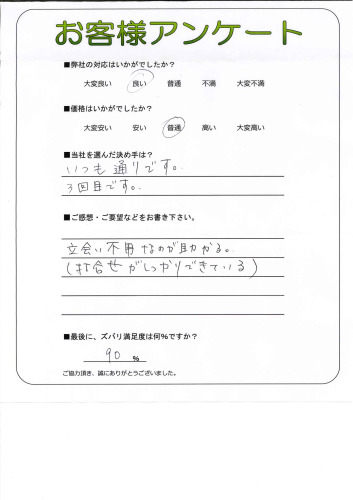 お客様アンケート
■弊社の対応はいかがでしたか？
大変良い 良い 普通 不満 大変不満
■価格はいかがでしたか？
大変安い 安い 普通 高い 大変高い
■当社を選んだ決め手は？
いつも通りです。
3回目です。
■ご感想・ご要望などをお書き下さい。
立会い不用なのが助かる。
(打合せがしっかりできている)
■最後に、ズバリ満足度は何%ですか？
90 %
ご協力頂き、誠にありがとうございました。